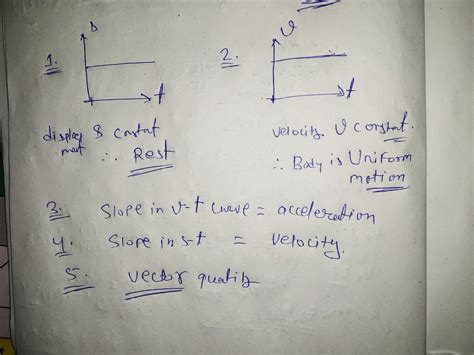 1. s t
2. v t
displacement s constat
∴ Rest
velocity v constat.
∴ Body is Uniform
motion
3. Slope in v-t curve = acceleration
4. Slope in s-t = velocity.
5. vector quatity